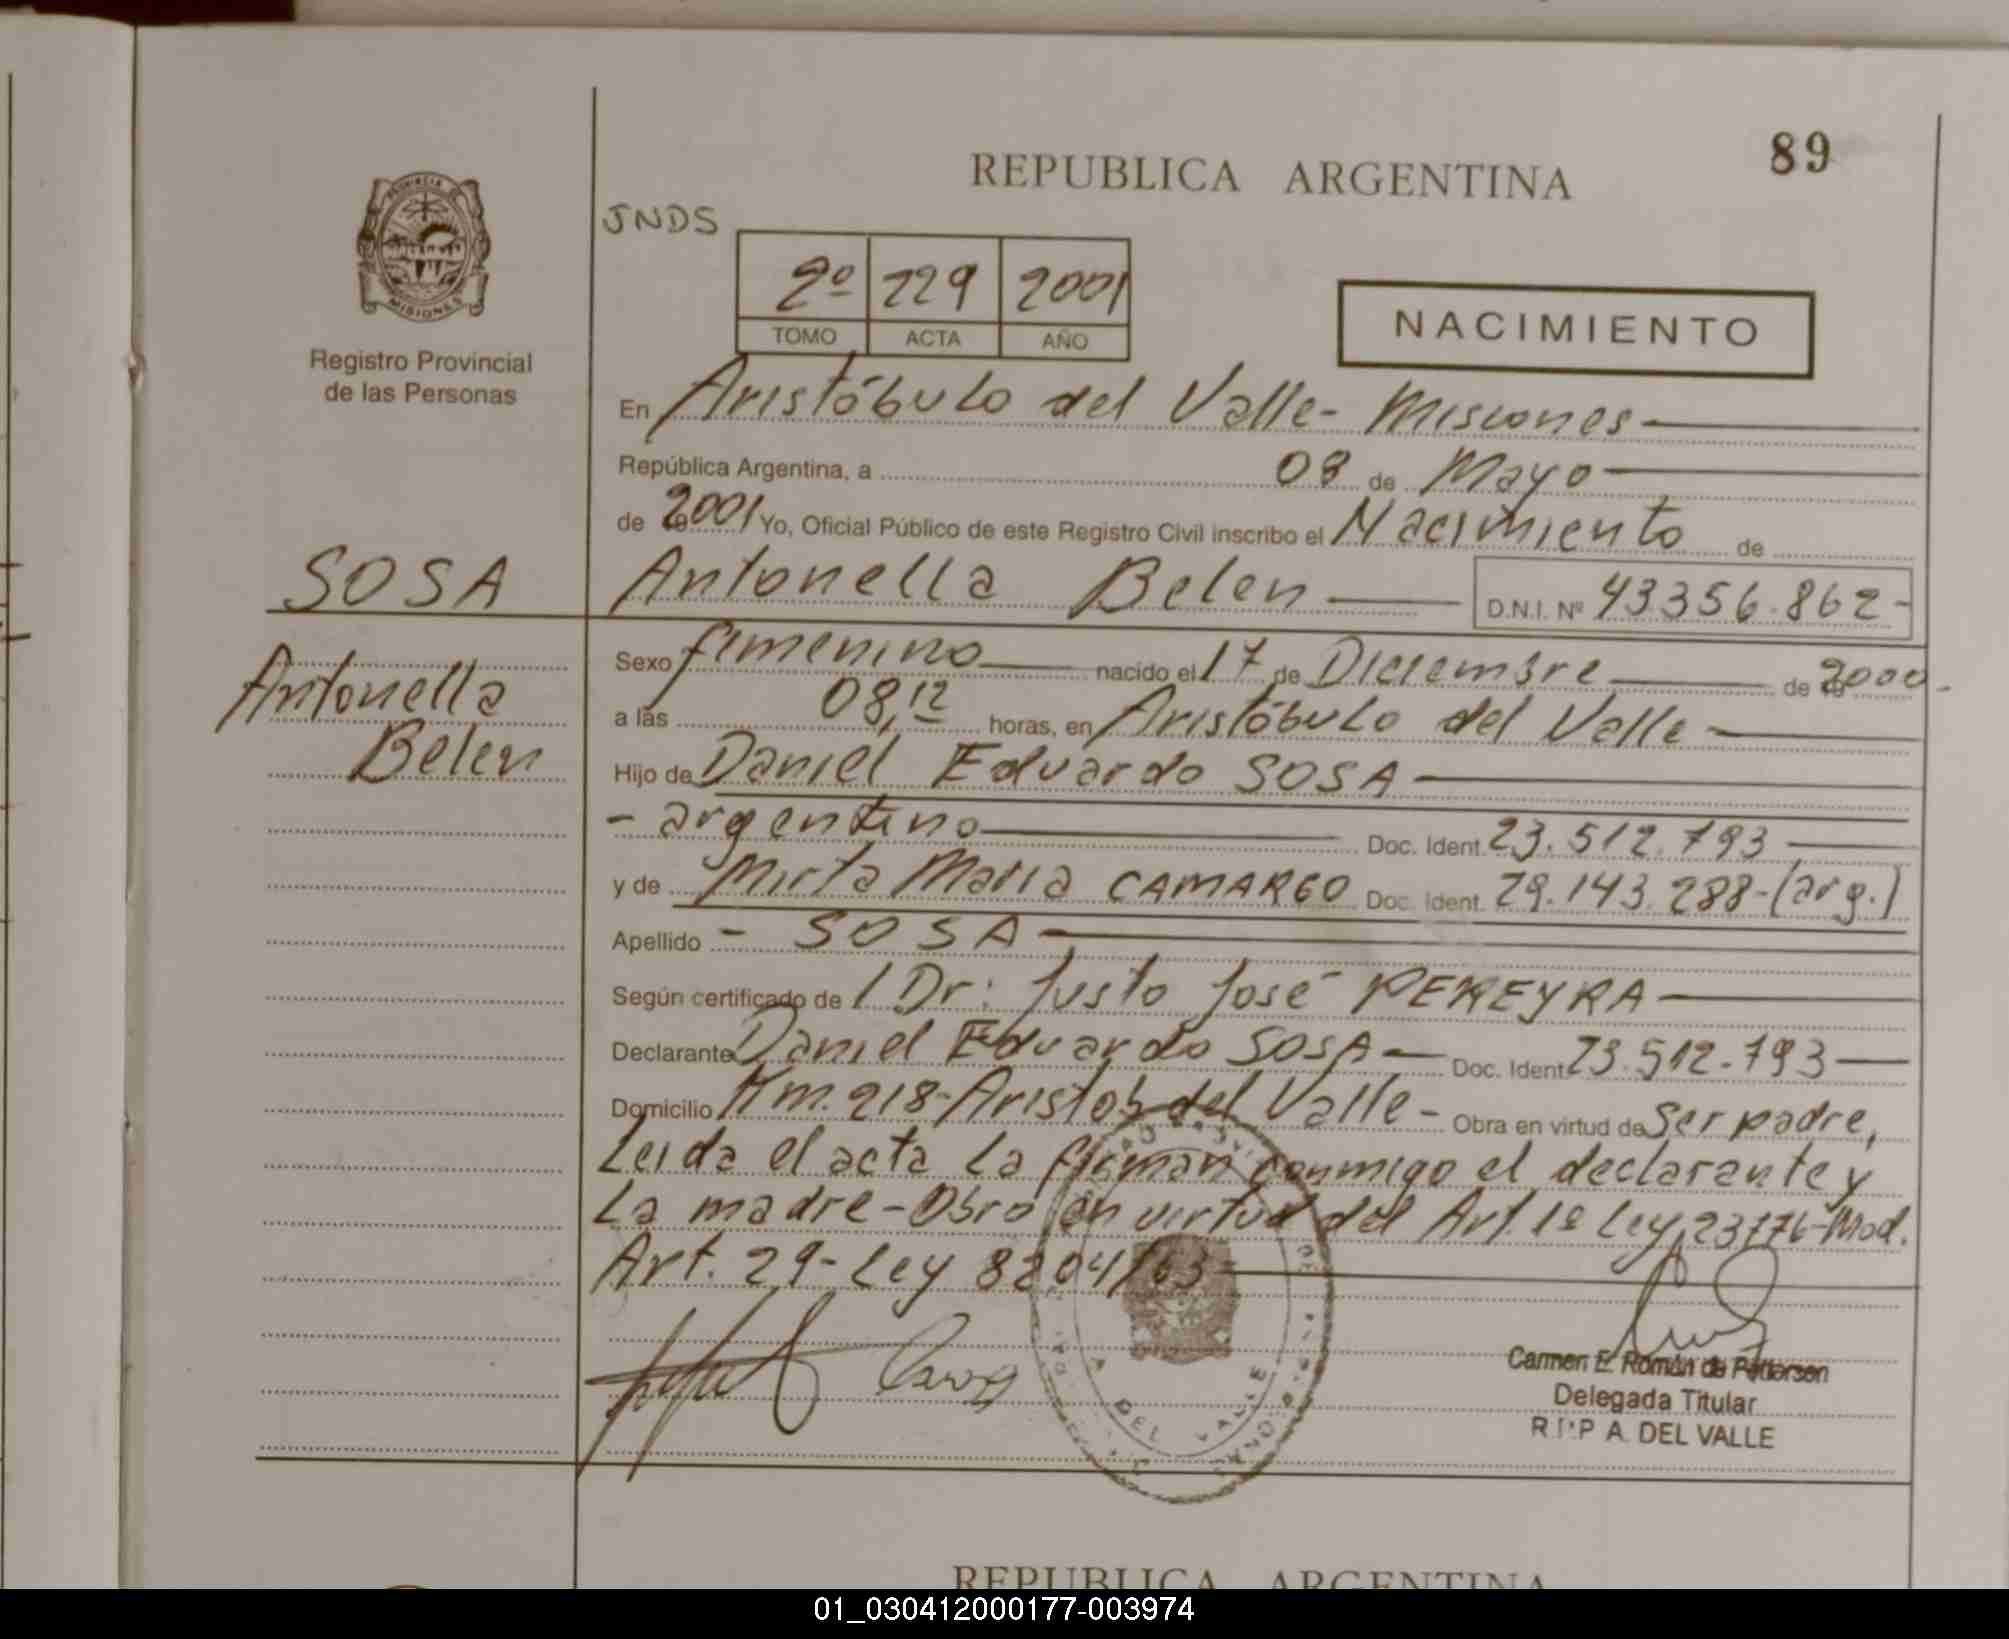 89
REPUBLICA ARGENTINA
JNDS
PROVINCIA DE
MISIONES
Registro Provincial
de las Personas
2º 229 2001
TOMO ACTA AÑO
NACIMIENTO
En Aristóbulo del Valle - Misiones
República Argentina, a 08 de Mayo
de 2001 Yo, Oficial Público de este Registro Civil inscribo el Nacimiento de
SOSA Antonella Belen D.N.I. Nº 43356.862-
Antonella
Belen
Sexo femenino nacido el 17 de Diciembre de 2000.
a las 08,12 horas, en Aristóbulo del Valle
Hijo de Daniel Eduardo SOSA
- argentino Doc. Ident. 23.512.793
y de Mirta Maria CAMARGO Doc. Ident. 29.143.288-(arg.)
Apellido - SOSA
Según certificado de / Dr: Justo José PEREYRA
Declarante Daniel Eduardo SOSA Doc. Ident. 23.512.793
Domicilio Km. 218-Aristob del Valle - Obra en virtud de Ser padre,
Leida el acta la firman conmigo el declarante y
la madre - Obro en virtud del Art. 1º Ley 23776-Mod.
Art. 29-Ley 8204/63
A DEL VALLE
Carmen E. Román de Pedersen
Delegada Titular
R.P.P A. DEL VALLE
REPUBLICA ARGENTINA
01_030412000177-003974